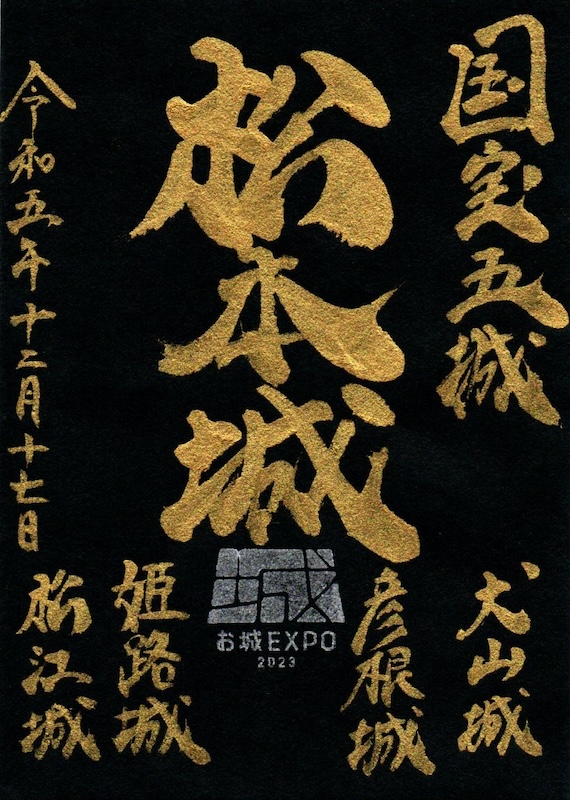 国宝五城
松本城
令和五年十二月十七日
犬山城
彦根城
城
お城EXPO
2023
姫路城
松江城